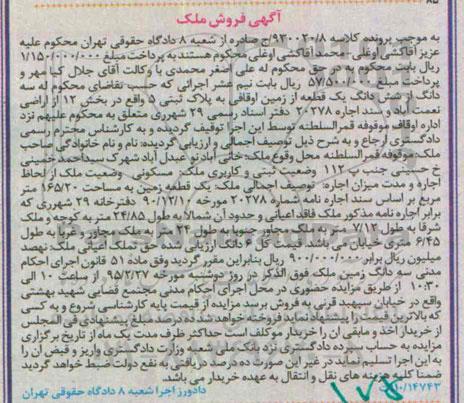 آگهی فروش ملک
به موجب پرونده کلاسه ۹۳۰۰۲۰/۸/ج صادره از شعبه ۸ دادگاه حقوقی تهران محکوم علیه
عزیز آقاکشی اوغلی - احمد آقاکشی اوغلی محکوم هستند به پرداخت مبلغ ۱/۱۵۰/۰۰۰/۰۰۰
ریال بابت محکوم به در حق محکوم له علی اصغر محمدی با وکالت آقای جلال کیا مهر و
پرداخت مبلغ ۵۷/۵۰۰/۰۰۰ ریال بابت نیم عشر اجرائی که حسب تقاضای محکوم له سه
دانگ از شش دانگ یک قطعه از زمین اوقافی به پلاک ثبتی ۵ واقع در بخش ۱۲ از اراضی
نعمت آباد و سند اجاره ۲۰۲۷۸ دفتر اسناد رسمی ۲۹ شهرری متعلق به محکوم علیهم نزد
اداره اوقاف موقوفه قمرالسلطنه توسط این اجرا توقیف گردیده و به کارشناس محترم رسمی
دادگستری ارجاع و به شرح ذیل توصیف اجمالی و ارزیابی گردیده: نام و نام خانوادگی صاحب
ملک: موقوفه قمرالسلطنه محل وقوع ملک: خانی آباد نو عبدل آباد شهرک سیداحمد خمینی
خ حسینی جنب پ ۱۱۲ وضعیت ثبتی و کاربری ملک: مسکونی وضعیت ملک از لحاظ
اجاره و مدت میزان اجاره: توصیف اجمالی ملک: یک قطعه زمین به مساحت ۱۶۵/۲۰ متر
مربع بر اساس سند اجاره نامه شماره ۲۰۲۷۸ مورخه ۹۰/۱۲/۱۰ دفترخانه ۲۹ شهرری که
برابر اجاره نامه مذکور ملک فاقد اعیانی و حدود آن شمالا به طول ۲۴/۸۵ متر به کوچه و ملک
شرقا به طول ۷/۱۲ متر به ملک مجاور جنوبا به طول ۲۴ متر به ملک مجاور و غربا به طول
۶/۴۵ متری خیابان می باشد. قیمت کل ۶ دانگ ارزیابی شده حق تملک اعیانی ملک: نهصد
میلیون ریال برابر ۹۰۰/۰۰۰/۰۰۰ ریال بنابراین مقرر گردید وفق ماده ۵۱ قانون اجرای احکام
مدنی سه دانگ زمین ملک فوق الذکر در روز دوشنبه مورخه ۹۵/۲/۲۷ از ساعت ۱۰ الی
۱۰:۳۰ از طریق مزایده حضوری در محل اجرای احکام مدنی مجتمع قضایی شهید بهشتی
واقع در خیابان سپهبد قرنی به فروش برسد مزایده از قیمت پایه کارشناسی شروع و به کسی
که بالاترین قیمت را پیشنهاد نماید فروخته خواهد شد. ده درصد مبلغ پیشنهادی فی المجلس
از خریدار اخذ و مابقی ان را خریدار موکلف است حداکثر ظرف مدت یک ماه از تاریخ برگزاری
مزایده به حساب سپرده دادگستری نزد بانک ملی شعبه وزارت دادگستری واریز و قبض ان را
به این اجرا تسلیم نماید در غیر این صورت ده درصد دریافتی به نفع دولت ضبط خواهد گردید
ضمنا کلیه هزینه های نقل و انتقال به عهده خریدار می باشد.
۱۱۰/۱۴۷۴۳ دادورز اجرا شعبه ۸ دادگاه حقوقی تهران